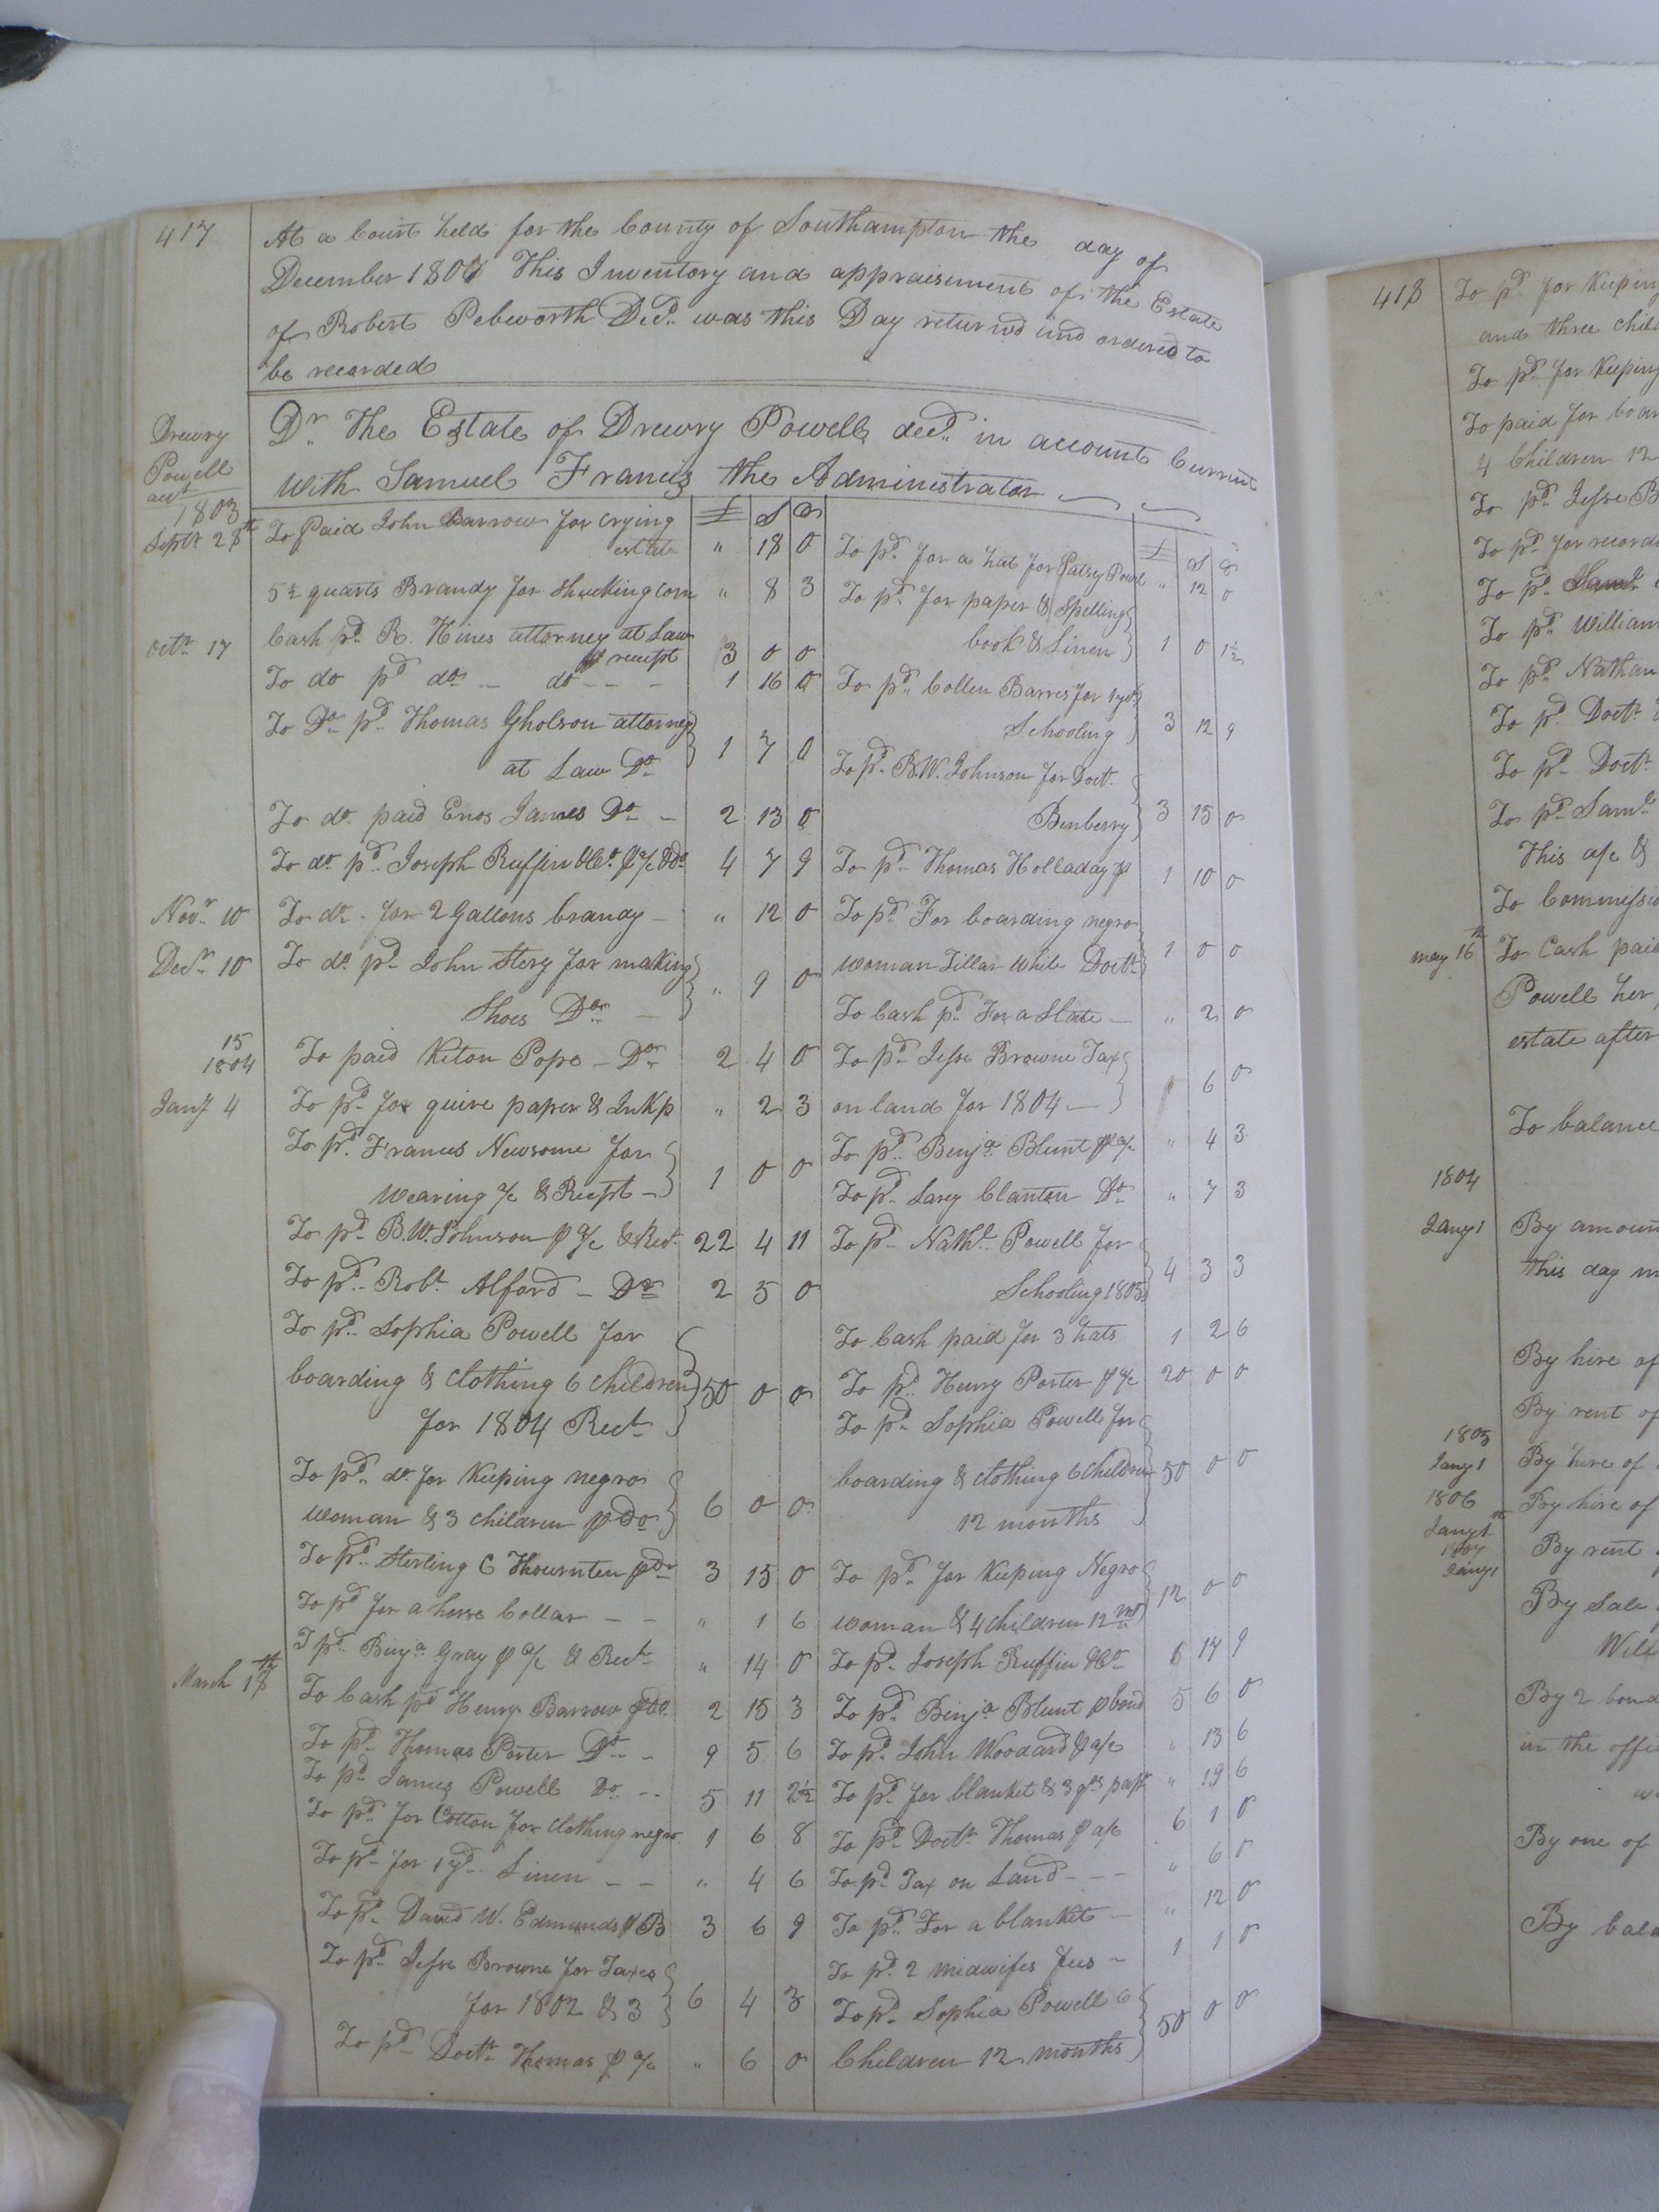 417
At a Court held for the County of Southampton the day of
December 1807 This Inventory and appraisement of the Estate
of Robert Pebworth Decd. was this Day returnd and ordered to
be recorded
Drewry
Powell
acct
Dr. The Estate of Drewry Powell decd. in account Current
with Samuel Francis the Administrator
£ S D
1803
Septr 28th To Paid John Barrow for crying
estate " 18 0
5½ quarts Brandy for Shucking Corn " 8 3
Octr. 17 Cash pd. R. Hines attorney at Law
receipt 3 0 0
To do pd do - do - - - 1 16 0
To Do pd. Thomas Gholson attorney
at Law Do 1 7 0
To do. paid Enos James Do - 2 13 0
To do. pd. Joseph Ruffin & Co. p a/c & do 4 7 9
Novr. 10 To do. for 2 Gallons brandy - " 12 0
Decr. 10 To do. pd John Story for making
Shoes Do - " 9 0
15
1804
To paid Kiton Pope - Do 2 4 0
Jany 4 To pd for quire paper & Ink p " 2 3
To pd. Frances Newsome for
Weaving a/c & Recept - 1 0 0
To pd B.W. Johnson p a/c & Rect. 22 4 11
To pd. Robt. Alford - Do 2 5 0
To pd. Sophia Powell for
boarding & Clothing 6 Children 50 0 0
for 1804 Rect.
To pd. do. for Keeping negro
woman & 3 children p do 6 0 0
To pd. Sterling C Thournten p do 3 15 0
To pd for a horse Collar - - " 1 6
T pd. Binja. Gray p a/c & Rect. " 14 0
March 17th To Cash pd Henry Barrow p do. 2 15 3
To pd. Thomas Porter Do - 9 5 6
To pd James Powell Do. - - 5 11 2½
To pd. for Cotton for Clothing negro 1 6 8
To pd for 1 yd. Linen - - " 4 6
To pd. David W. Edmunds p B 3 6 9
To pd. Jesse Browne for Taxes
for 1802 & 3 6 4 3
To pd Doctr. Thomas p a/c " 6 0
£ S D
To pd. for a hat for Patsey Powel " 12 0
To pd. for paper & Spelling
book & Linen 1 0 1½
To pd. Collen Barnes for 1 yrs
Schooling 3 12 9
To pd. B.W. Johnson for Doct.
Benberry 3 15 0
To pd. Thomas Holladay p 1 10 0
To pd. For boarding negro
woman Tillar while Doctr. 1 0 0
To Cash pd. For a Slate - " 2 0
To pd. Jesse Browne Tax
on land for 1804 - 6 0
To pd. Benja. Blunt p a/c " 4 3
To pd. Larey Clanton Do " 7 3
To pd. Nathl. Powell for
Schooling 1805 4 3 3
To Cash paid for 3 hats 1 2 6
To pd. Henry Porter p a/c 20 0 0
To pd. Sophia Powell for
boarding & clothing 6 Children 50 0 0
12 months
To pd. for Keeping Negro
woman & 4 Children 12 mo 12 0 0
To pd. Joseph Ruffin & Co 17 9
To pd. Binja Blunt p bond 5 6 0
To pd. John Woodard p a/c " 13 6
To pd. for blanket & 3 qrs papr " 19 6
To pd. Doctr. Thomas p a/c 6 1 0
To pd Tax on Land - - - " 6 0
To pd. For a blanket - " 12 0
To pd. 2 midwifes fees - 1 1 0
To pd. Sophia Powell 6
Children 12 months 50 0 0
418
To pd for Keeping
and three
To pd for Keeping
To paid for
4 Children 12
To pd. Jesse B
To pd for
To pd. Saml
To pd. William
To pd. Nathan
To pd. Doctr.
To pd. Doctr
To pd. Saml
This a/c &
To
may 16th To Cash paid
Powell her
estate after
To balance
1804
Jany 1 By
this day
By hire of
By rent of
1805
Jany 1 By hire of
1806
Jany 1st By hire of
1807
Jany 1 By rent
By Sale
By 2
in the
By one of
By